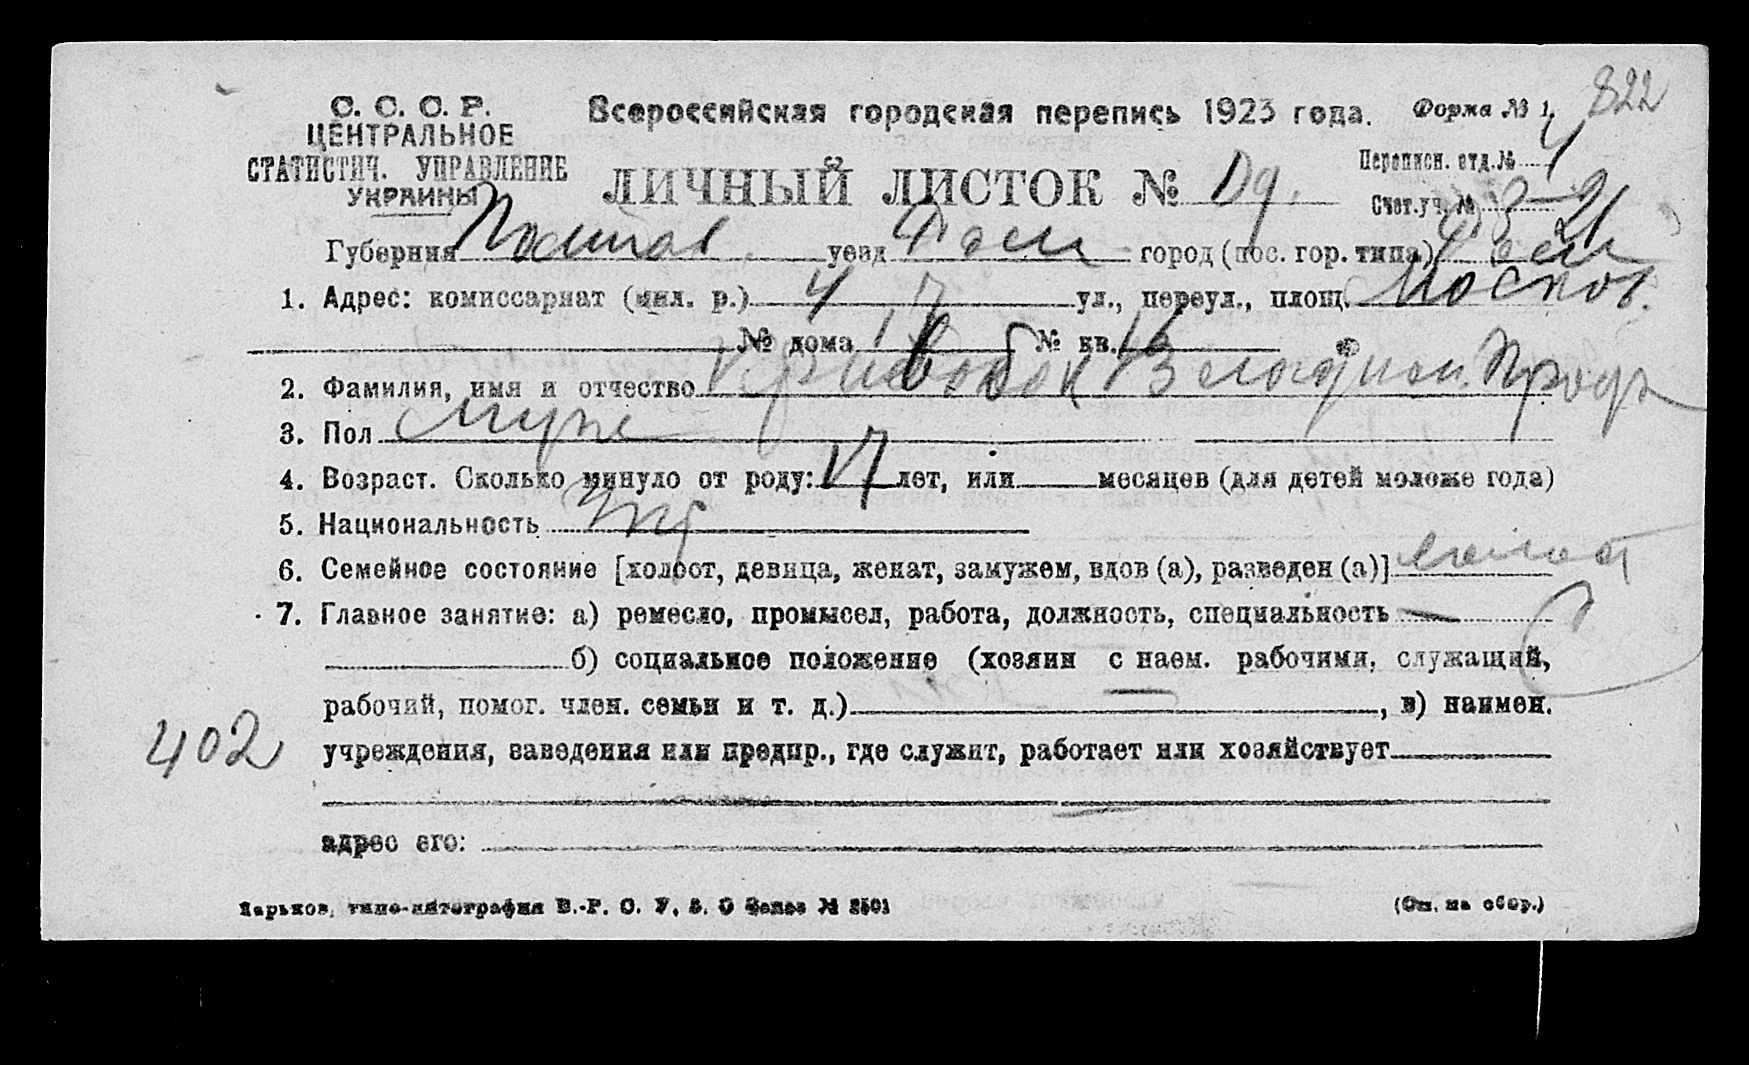 822
С. С. С. Р.
ЦЕНТРАЛЬНОЕ
СТАТИСТИЧ. УПРАВЛЕНИЕ
УКРАИНЫ
Всероссийская городская перепись 1923 года. Форма № 1.
ЛИЧНЫЙ ЛИСТОК №
Переписн. отд. № 4
Счет. уч. №
Губерния Полтав. уезд город (пос. гор. типа)
1. Адрес: комиссариат (мил. р.) 4 ул., переул., площ. Москов.
№ дома № кв.
2. Фамилия, имя и отчество
3. Пол муж
4. Возраст. Сколько минуло от роду: 17 лет, или месяцев (для детей моложе года)
5. Национальность Укр
6. Семейное состояние [холост, девица, женат, замужем, вдов (а), разведен (а)] холост
7. Главное занятие: а) ремесло, промысел, работа, должность, специальность —
б) социальное положение (хозяин с наем. рабочими, служащий,
рабочий, помог. член. семьи и т. д.) — , в) наимен.
402
учреждения, заведения или предпр., где служит, работает или хозяйствует
адрес его:
Харьков, типо-литография В.-Р. О. У. В. О Заказ № 2501 (См. на обор.)